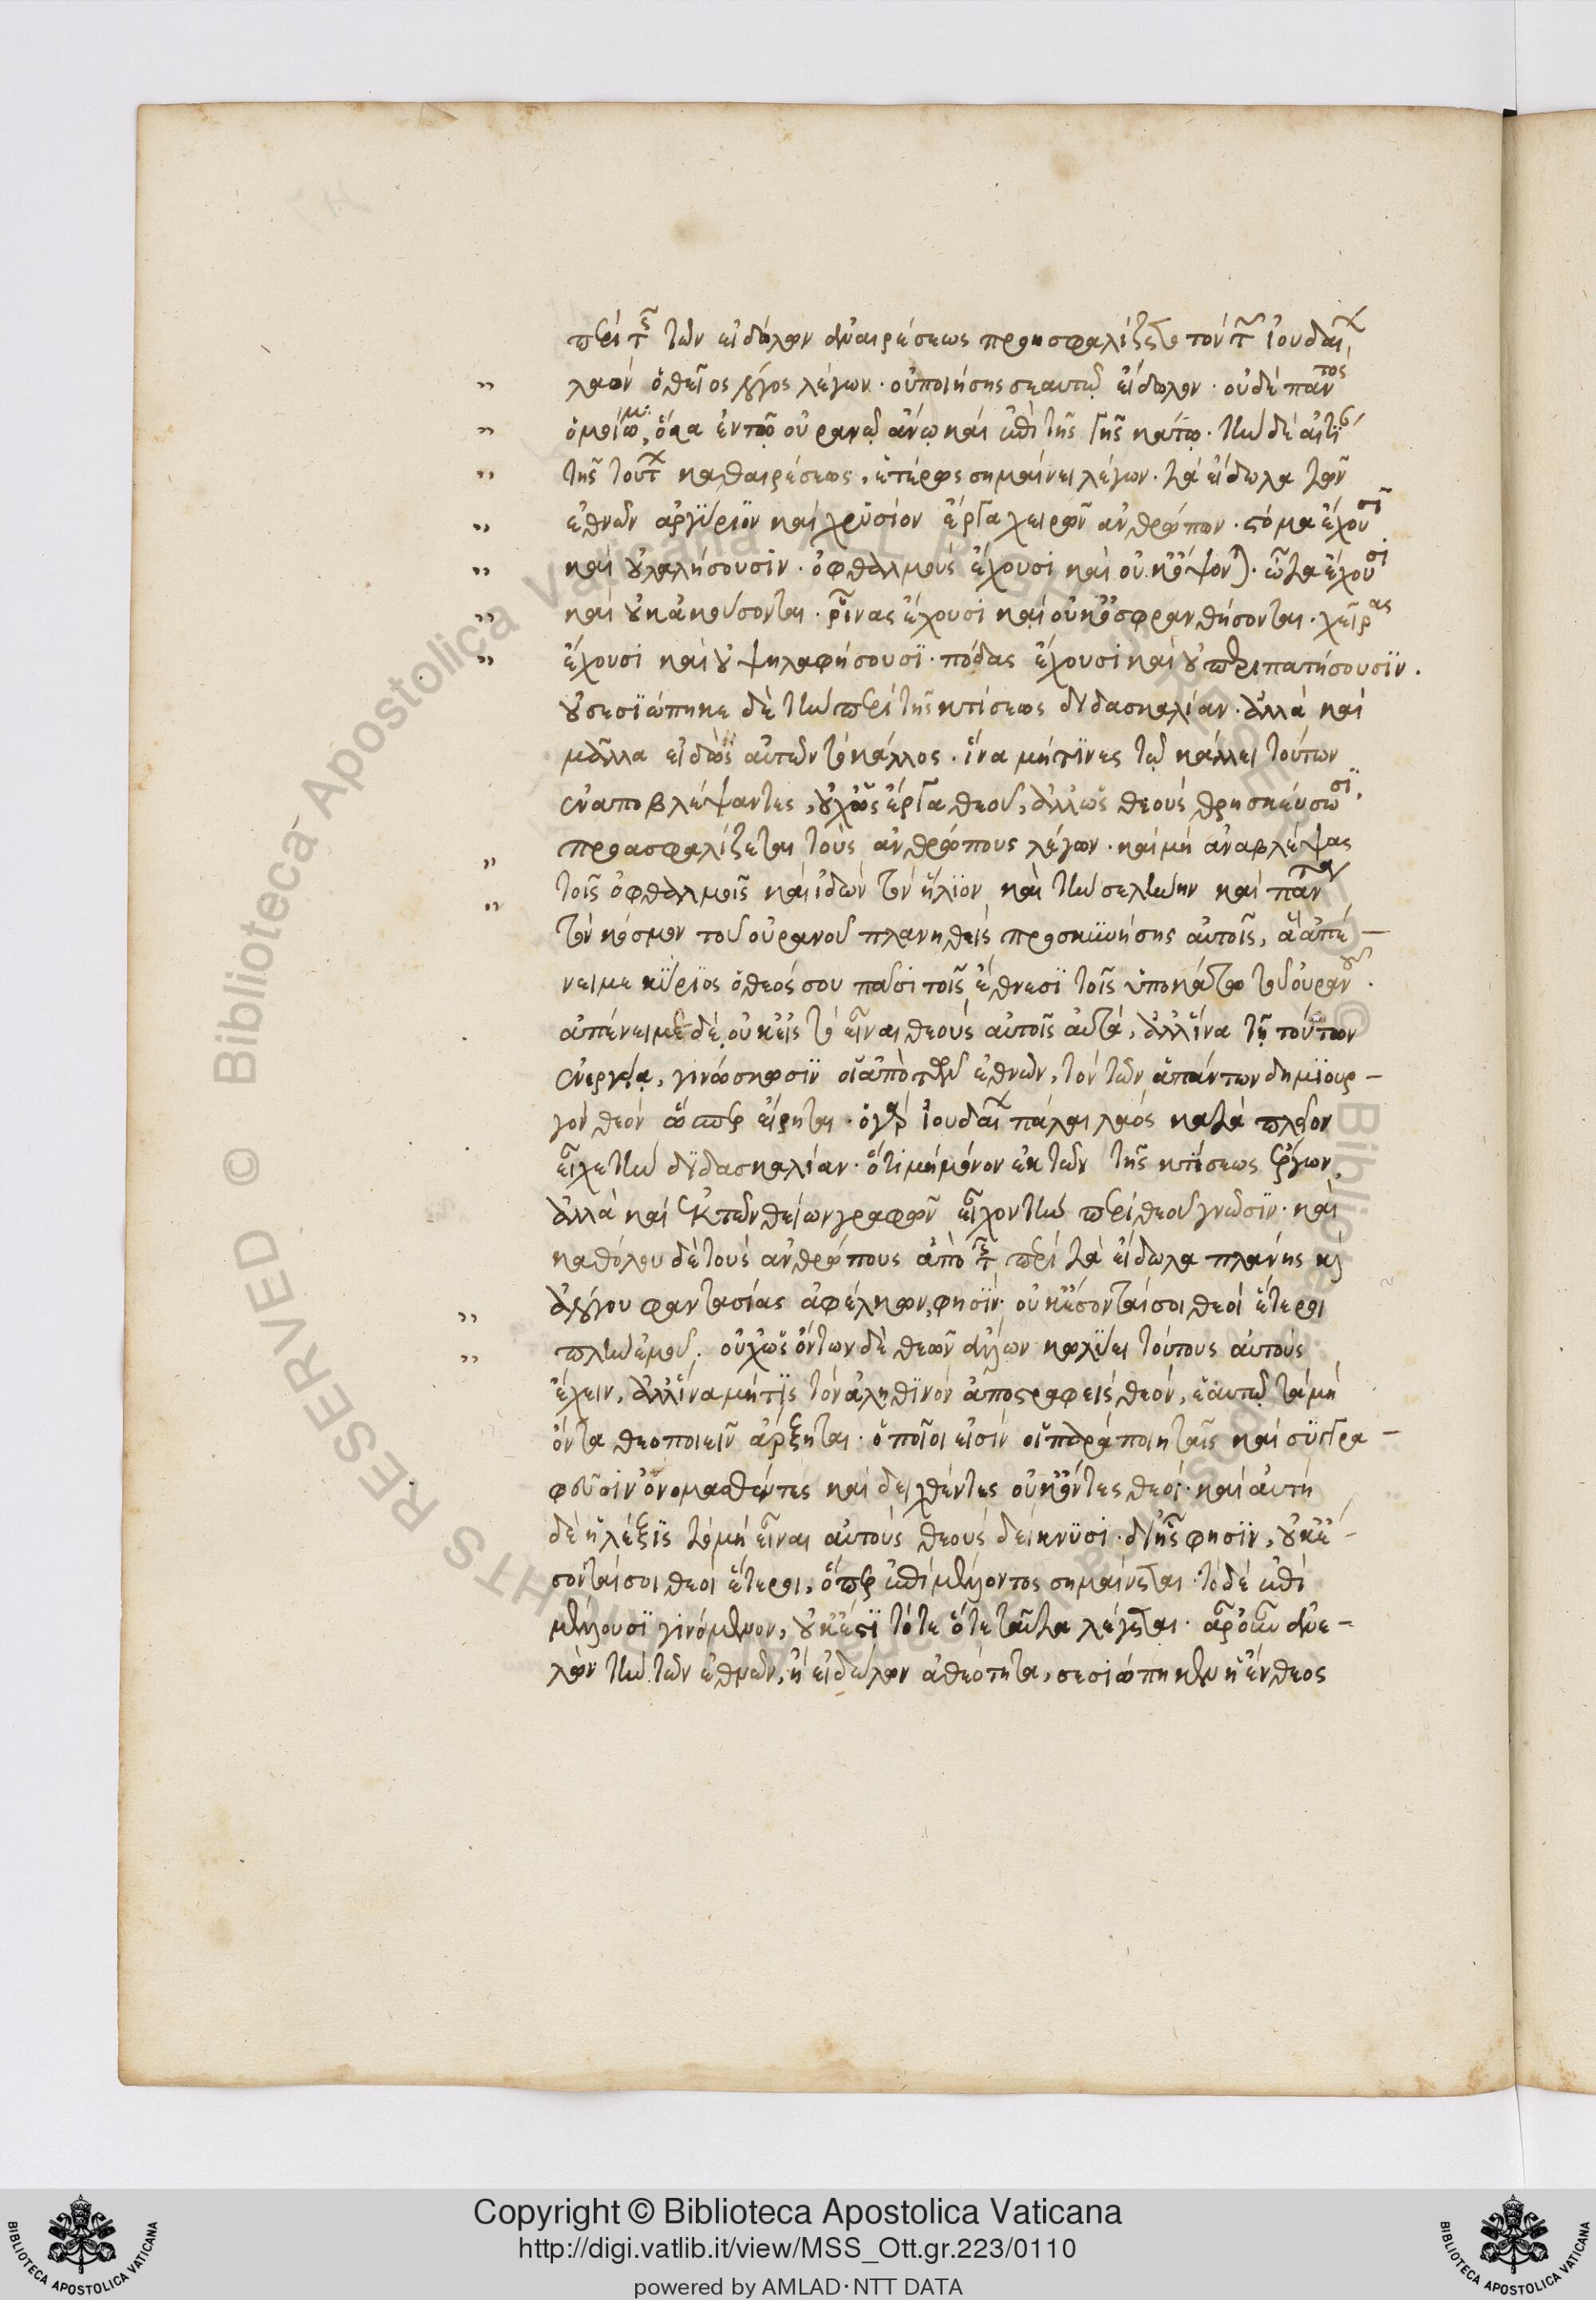 περὶ τῆς τῶν εἰδώλων ἀναιρέσεως προησφαλίζετο τὸν τῶν ἰουδαίων
λαὸν ὁ θεῖος λόγος λέγων· οὐ ποιήσης σεαυτῷ εἴδωλον· οὐδὲ παντὸς
ὁμοίωμα, ὅσα ἐν τῷ οὐρανῷ ἄνω καὶ ἐπὶ τῆς γῆς κάτω· τὴν δὲ αἰτίαν
τῆς τούτων καθαιρέσεως, ἑτέρως σημαίνει λέγων· τὰ εἴδωλα τῶν
ἐθνῶν ἀργύριον καὶ χρυσίον ἔργα χειρῶν ἀνθρώπων· στόμα ἔχουσι
καὶ οὐ λαλήσουσιν· ὀφθαλμοὺς ἔχουσι καὶ οὐκ ὄψονται· ὦτα ἔχουσι
καὶ οὐκ ἀκούσονται· ῥῖνας ἔχουσι καὶ οὐκ ὀσφρανθήσονται· χεῖρας
ἔχουσι καὶ οὐ ψηλαφήσουσι· πόδας ἔχουσι καὶ οὐ περιπατήσουσιν.
οὐ σεσιώπηκε δὲ τὴν περὶ τῆς κτίσεως διδασκαλίαν· ἀλλὰ καὶ
μάλα εἰδὼς αὐτῶν τὸ κάλλος· ἵνα μή τινες τῷ κάλλει τούτων
ἐναποβλέψαντες, οὐχ ὡς ἔργα θεοῦ, ἀλλ' ὡς θεοὺς θρησκεύσωσι,
προασφαλίζεται τοὺς ἀνθρώπους λέγων· καὶ μὴ ἀναβλέψας
τοῖς ὀφθαλμοῖς καὶ ἰδὼν τὸν ἥλιον καὶ τὴν σελήνην καὶ πάντα
τὸν κόσμον τοῦ οὐρανοῦ πλανηθεὶς προσκυνήσης αὐτοῖς, ἃ ἀπέ-
νειμε κύριος ὁ θεός σου πᾶσι τοῖς ἔθνεσι τοῖς ὑποκάτω τοῦ οὐρανοῦ.
ἀπένειμε δὲ, οὐκ εἰς τὸ εἶναι θεοὺς αὐτοῖς αὐτά, ἀλλ' ἵνα τῇ τούτων
ἐνεργείᾳ, γινώσκωσιν οἱ ἀπὸ τῶν ἐθνῶν, τὸν τῶν ἁπάντων δημιουρ-
γὸν θεὸν ὥσπερ εἴρηται· ὁ γὰρ ἰουδαίων πάλαι λαὸς κατὰ πλεῖον
εἶχε τὴν διδασκαλίαν· ὅτι μὴ μόνον ἐκ τῶν τῆς κτίσεως ἔργων,
ἀλλὰ καὶ ἐκ τῶν θείων γραφῶν εἶχον τὴν περὶ θεοῦ γνῶσιν· καὶ
καθόλου δὲ τοὺς ἀνθρώπους ἀπὸ τῆς περὶ τὰ εἴδωλα πλάνης καὶ
ἀλόγου φαντασίας ἀφέλκων, φησὶν· οὐκ ἔσονταί σοι θεοὶ ἕτεροι
πλὴν ἐμοῦ· οὐχ ὡς ὄντων δὲ θεῶν ἄλλων κωλύει τούτους αὐτοὺς
ἔχειν, ἀλλ' ἵνα μή τις τὸν ἀληθινὸν ἀποστραφεὶς θεόν, ἑαυτῷ τὰ μὴ
ὄντα θεοποιεῖν ἄρξηται· ὁποῖοί εἰσιν οἱ παρὰ ποιηταῖς καὶ συγγρα-
φεῦσιν ὀνομασθέντες καὶ δειχθέντες οὐκ ὄντες θεοί· καὶ αὐτὴ
δὲ ἡ λέξις τὸ μὴ εἶναι αὐτοὺς θεοὺς δείκνυσι· δι' ἧς φησὶν, οὐκ ἔ-
σονταί σοι θεοὶ ἕτεροι, ὅπερ ἐπὶ μέλλοντος σημαίνεται· τὸ δὲ ἐπὶ
μέλλουσι γινόμενον, οὐκ ἔστι τότε ὅτε ταῦτα λέγεται· ἆρ' οὖν ἀνε-
λὼν τὴν τῶν ἐθνῶν, ἢ εἰδώλων ἀθεότητα, σεσιώπηκεν ἡ ἔνθεος
Copyright © Biblioteca Apostolica Vaticana
http://digi.vatlib.it/view/MSS_Ott.gr.223/0110
powered by AMLAD·NTT DATA